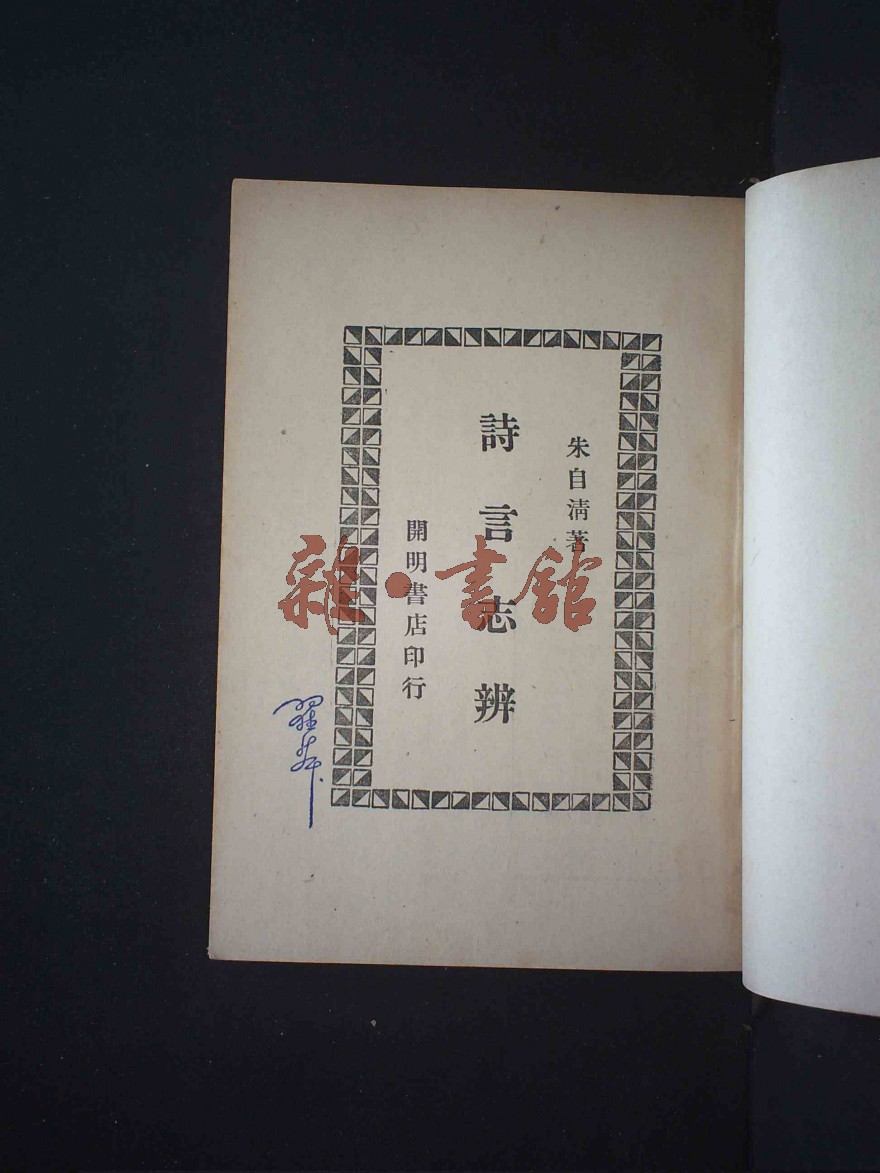 朱自清著
詩言志辨
開明書店印行
雜·書館